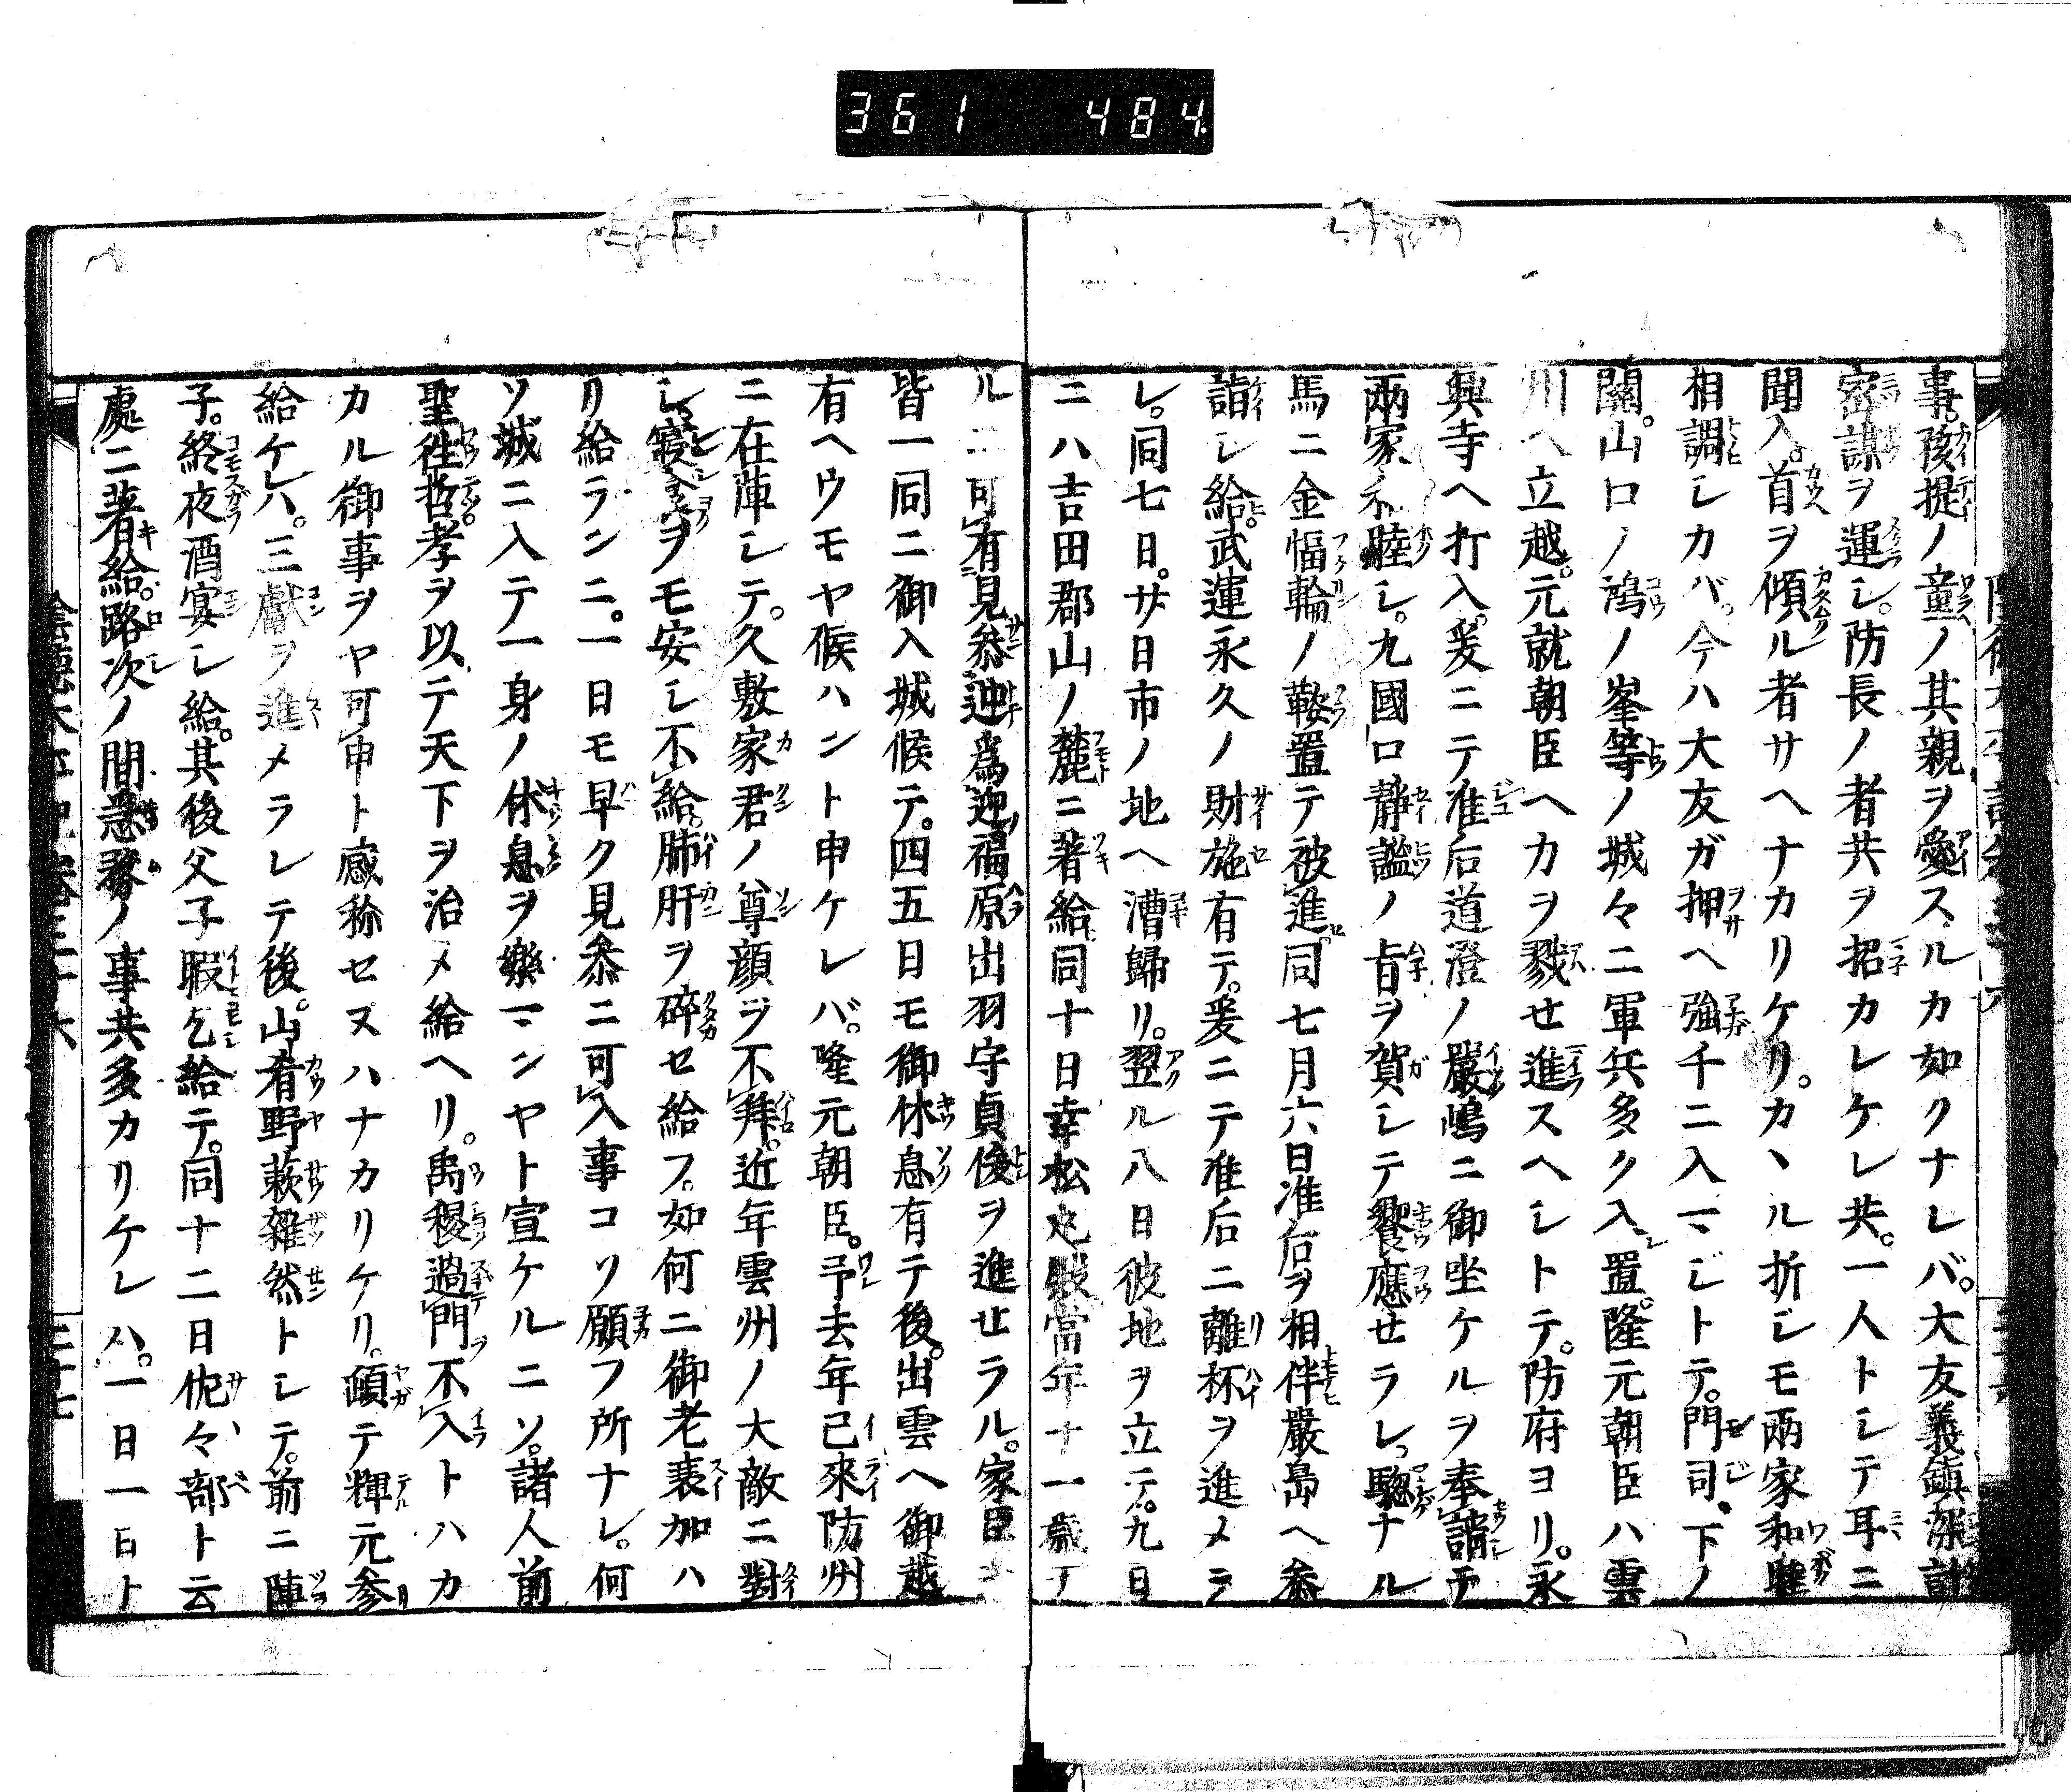 361 484.
事。孩提ノ童ノ其親ヲ愛スルカ如クナレバ。大友義鎮深計
密謀ヲ運シ。防長ノ者共ヲ招カレケレ共。一人トシテ耳ニ
聞入。首ヲ傾ル者サヘナカリケリ。カヽル折シモ兩家和睦
相調シカバ。今ハ大友ガ押ヘ強千ニ入マジトテ。門司。下ノ
關。山口ノ鴻ノ峯等ノ城々ニ軍兵多ク入置。隆元朝臣ハ雲
州ヘ立越。元就朝臣ヘカヲ戮せ進スヘシトテ。防府ヨリ。永
興寺ヘ打入。爰ニテ准后道澄ノ嚴嶋ニ御坐ケルヲ奉請テ
兩家和睦シ。九國口静謐ノ旨ヲ賀シテ饗應せラレ。驄ナル
馬ニ金幅輪ノ鞍置テ被進。同七月六日准后ヲ相伴嚴島ヘ參
詣シ給。武運永久ノ財施有テ。爰ニテ准后ニ離杯ヲ進メラ
レ。同七日。廿日市ノ地ヘ漕歸リ。翌ル八日彼地ヲ立テ。九日
ニハ吉田郡山ノ麓ニ著給。同十日幸松丸殿當年十一歳ナ
ルニ可有見參迚爲迎福原出羽守貞俊ヲ進せラル。家臣
皆一同ニ御入城候テ。四五日モ御休息有テ後。出雲ヘ御越
有ヘウモヤ候ハント申ケレバ。隆元朝臣。予去年已來防州
ニ在陣シテ。久敷家君ノ尊顔ヲ不拜。近年雲州ノ大敵ニ對
シ寢食ヲモ安シ不給。肺肝ヲ碎セ給フ。如何ニ御老衰加ハ
リ給ランニ。一日モ早ク見參ニ可入事コソ願フ所ナレ。何
ソ城ニ入テ一身ノ休息ヲ樂マンヤト宣ケルニソ。諸人前
聖徃哲孝ヲ以テ天下ヲ治メ給ヘリ。禹稷過門不入トハカ
カル御事ヲヤ可申ト感称セヌハナカリケリ。頓テ輝元參
給ケレハ。三獻ヲ進メラレテ後。山肴野蔌雜然トシテ。前ニ陣
子。終夜酒宴シ給。其後父子暇乞給テ。同十二日佐々部ト云
處ニ著給。路次ノ間急務ノ事共多カリケレハ。一日一日ト
陰德太平記卷三十六
三十七